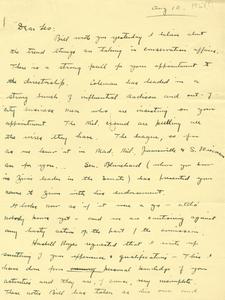 Aug 10, 1951
Dear Les:
Bill wrote you yesterday I believe about
the trend things are taking in conservation affairs.
There is a strong pull for your appointment to
the directorship. Coleman has headed in a
strong bunch of influential Madison and out-of-
city business men who are insisting on your
appointment. The Mil. crowd are pulling all
the wires they have. The league, so far
as we know at in Mad, Mil, Janesville & S. Wisconsin
are for you. Sen. Blanchard (whom you know
is Zim's leader in the Senate) has presented your
name to Zim with his endorsement.
It looks now as if it was a go - altho
nobody knows yet - and we are cautioning against
any hasty action of the part of the commission.
Haskell Noyes requested that I write up
something of your experience & qualifications - This I
have done from personal knowledge of your
activities and they are, of course, very incomplete
These notes Bill has taken as his own and